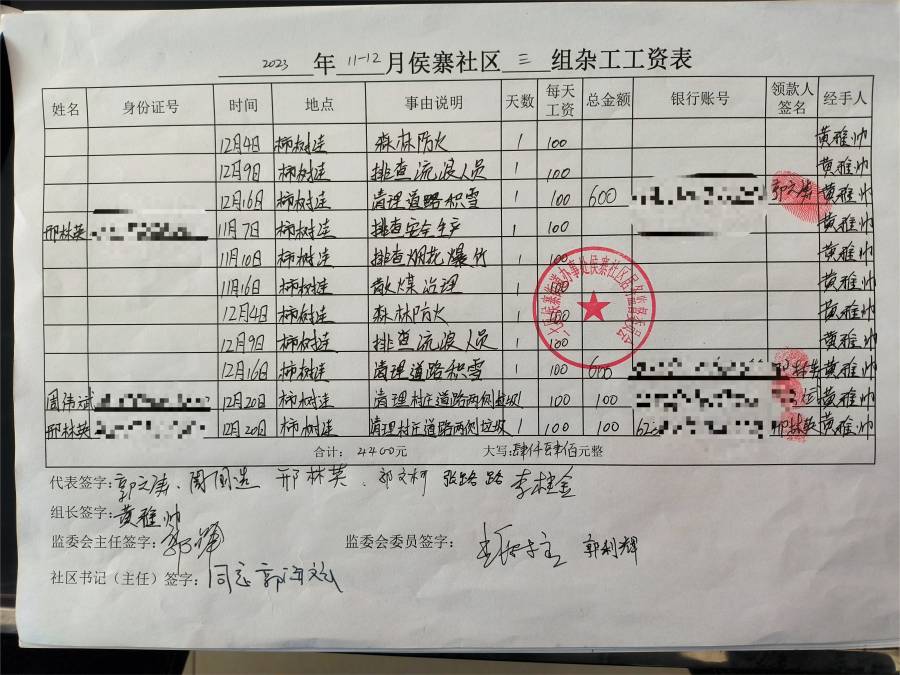 2023 年 11-12 月侯寨社区 三 组杂工工资表
姓名 身份证号 时间 地点 事由说明 天数 每天工资 总金额 银行账号 领款人签名 经手人
12月4日 柿树洼 森林防火 1 100 黄雅帅
12月9日 柿树洼 排查流浪人员 1 100 黄雅帅
12月16日 柿树洼 清理道路积雪 1 100 600 郭文涛 黄雅帅
邢林英 11月7日 柿树洼 排查安全生产 1 100 黄雅帅
11月10日 柿树洼 排查烟花爆竹 1 100 黄雅帅
11月16日 柿树洼 散煤治理 1 100 黄雅帅
12月4日 柿树洼 森林防火 1 100 黄雅帅
12月9日 柿树洼 排查流浪人员 1 100 黄雅帅
12月16日 柿树洼 清理道路积雪 1 100 600 邢林英 黄雅帅
周伟斌 12月20日 柿树洼 清理村庄道路两侧垃圾 1 100 100 黄雅帅
邢林英 12月20日 柿树洼 清理村庄道路两侧垃圾 1 100 100 62 邢林英 黄雅帅
合计: 4400元 大写:肆仟肆佰元整
代表签字: 郭文涛、周国选 邢林英、郭文柯 张路路 李桂金
组长签字: 黄雅帅
监委会主任签字: 监委会委员签字: 郭利辉
社区书记(主任)签字: 同意 郭海斌